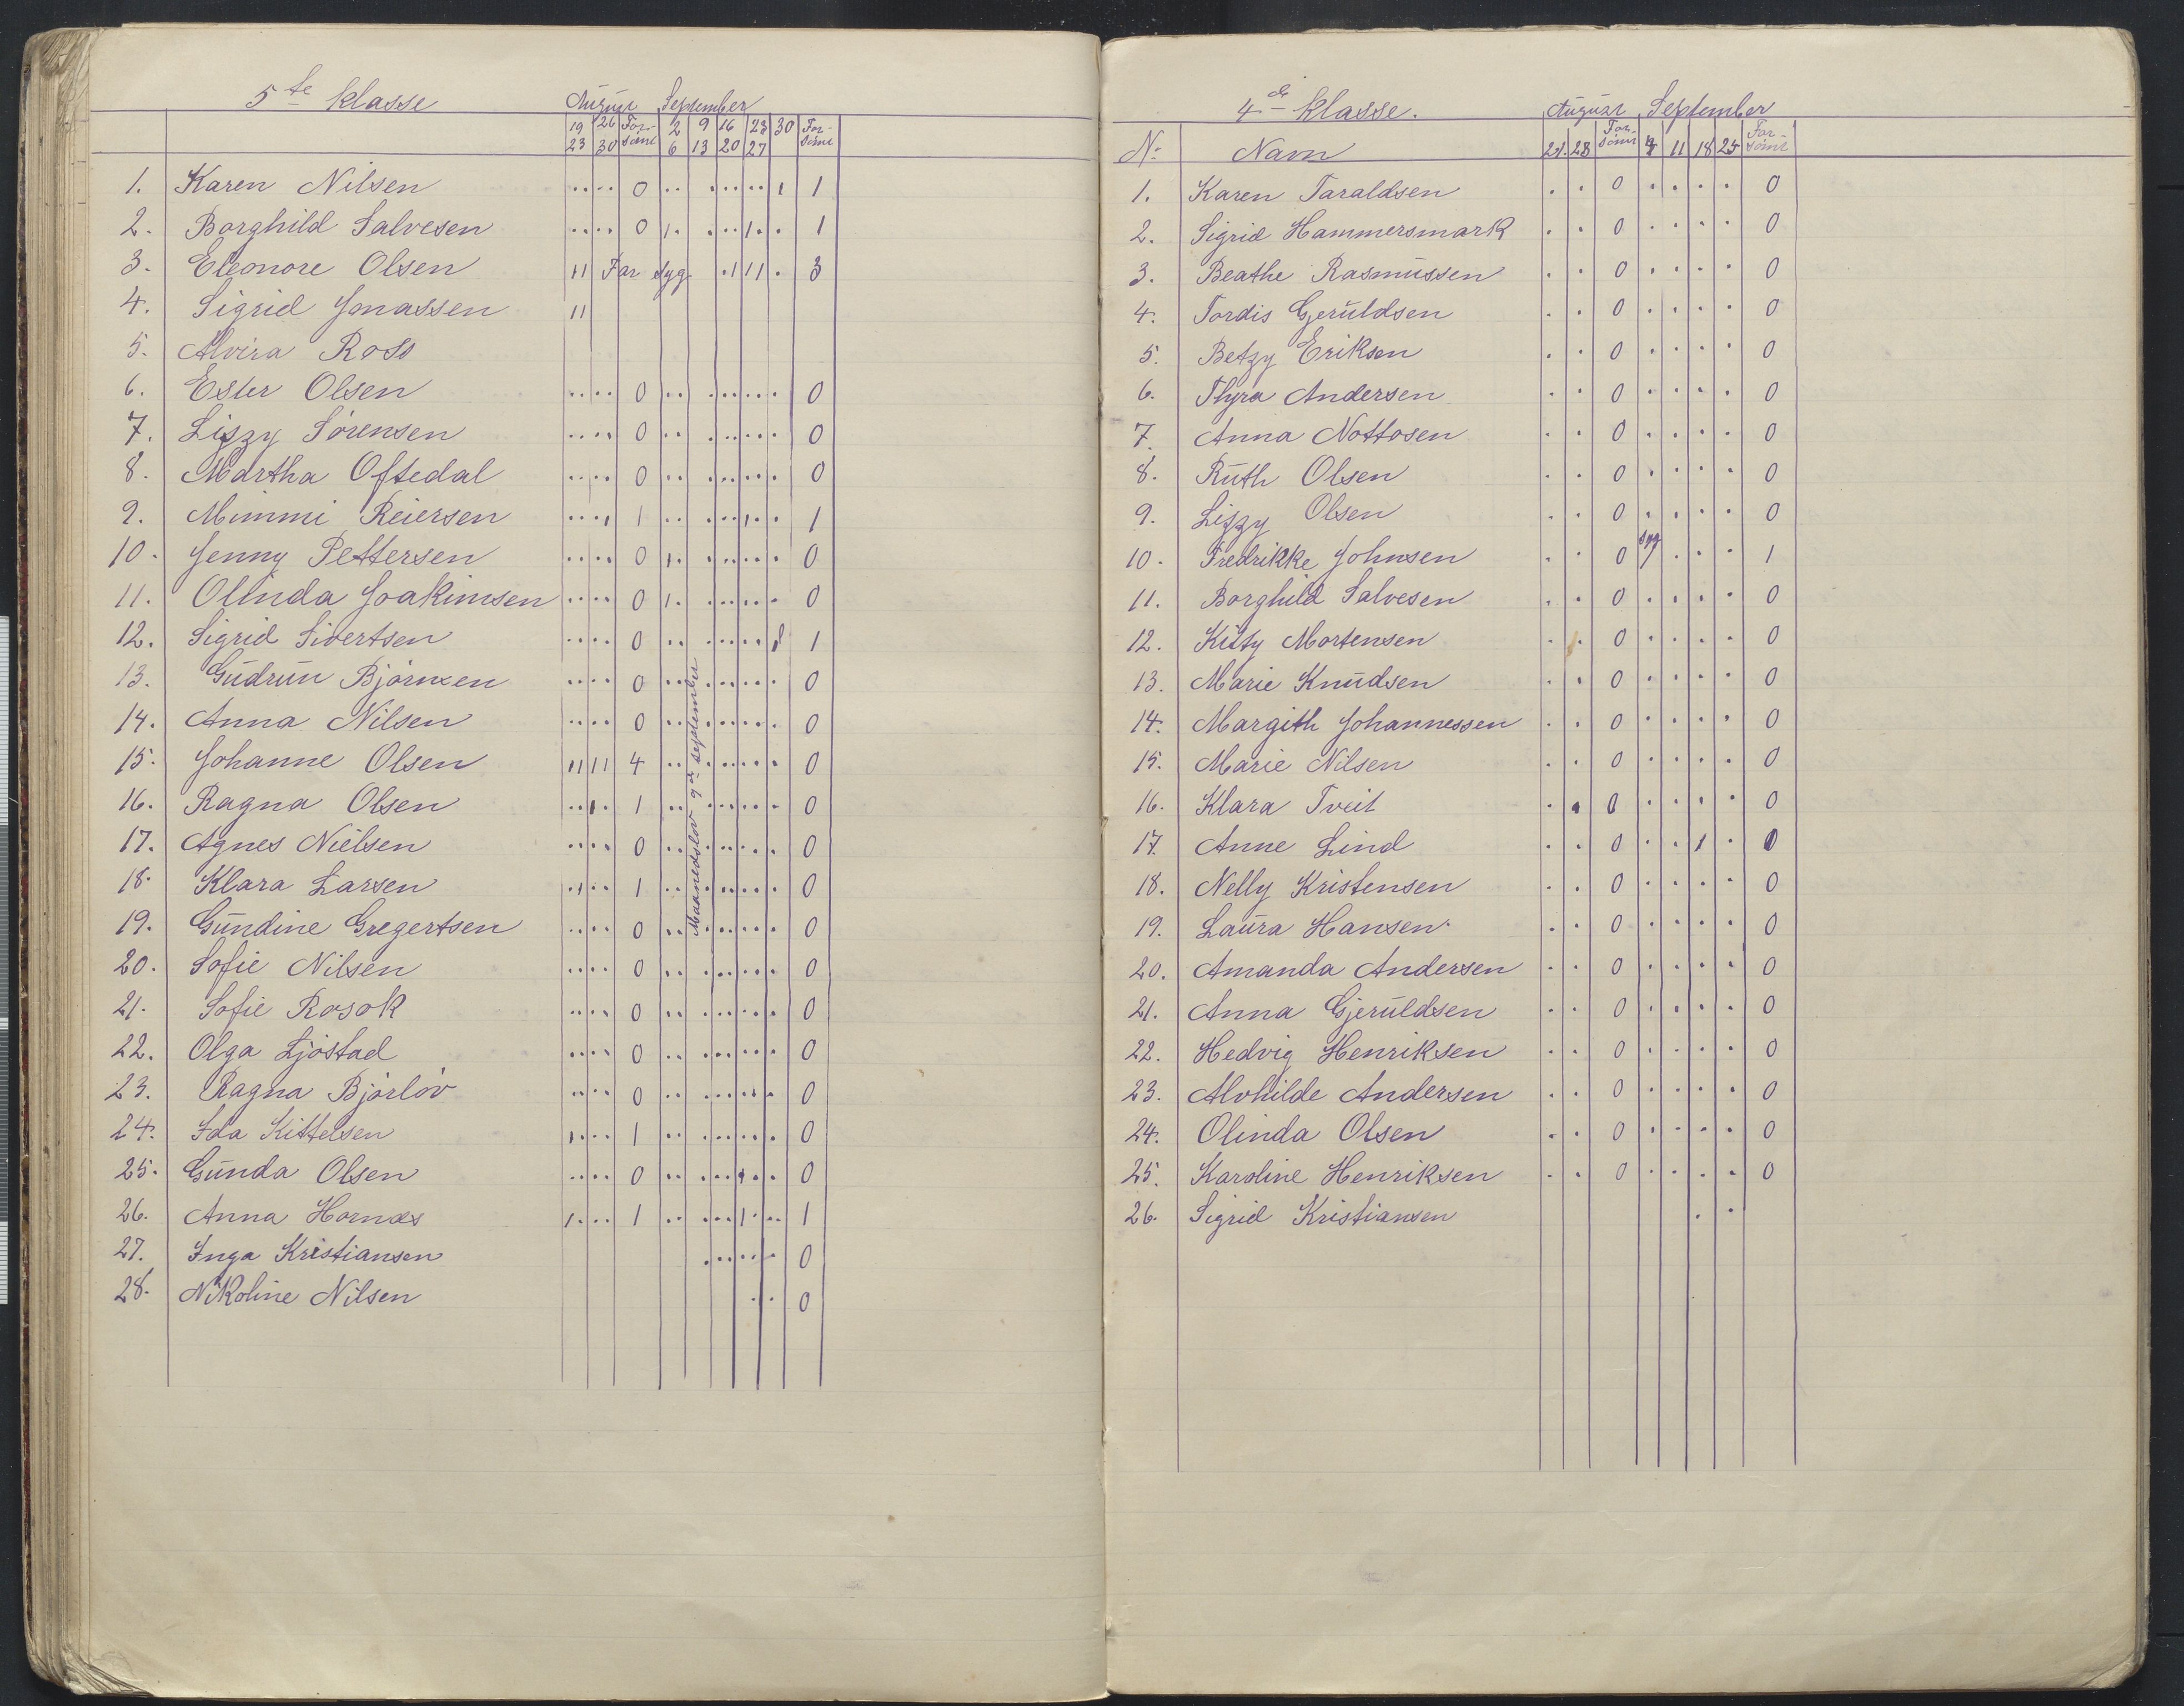 5te Klasse August September
19 26 For- 2 9 16 23 30 For-
23 30 sömt 6 13 20 27 sömt
1. Karen Nilsen .. .. 0 .. . .. .. ı 1
2. Borghild Salvesen .. .. 0 ı. . .. ı. . 1
3. Eleonore Olsen ıı Far syg. .ı ıı . 3
4. Sigrid Jonassen ıı
5. Alvira Ross
6. Ester Olsen .. .. 0 .. . .. .. . 0
7. Lizzy Sörensen .. .. 0 .. . .. .. . 0
8. Martha Oftedal .. .. 0 .. . .. .. . 0
9. Mimmi Reiersen .. .ı 1 .. . .. ı. . 1
10. Jenny Pettersen .. .. 0 ı. . .. .. . 0
11. Olinda Joakimsen .. .. 0 ı. . .. .. . 0
12. Sigrid Sivertsen .. .. 0 .. . .. .. ı 1
13. Gudrun Björnsen .. .. 0 .. . .. .. . 0
14. Anna Nilsen .. .. 0 .. . .. .. . 0
15. Johanne Olsen ıı ıı 4 .. . .. .. . 0
16. Ragna Olsen .. ı. 1 .. . .. .. . 0
17. Agnes Nielsen .. .. 0 .. . .. .. . 0
18. Klara Larsen .ı .. 1 .. . .. .. . 0
19. Gundine Gregertsen .. .. 0 .. . .. .. . 0
20. Sofie Nilsen .. .. 0 .. . .. .. . 0
21. Sofie Rosok .. .. 0 .. . .. .. . 0
22. Olga Ljöstad .. .. 0 .. . .. .. . 0
23. Ragna Björlöv .. .. 0 .. . .. .. . 0
24. Ida Kittelsen ı. .. 1 .. . .. .. . 0
25. Gunda Olsen .. .. 0 .. . .. .. . 0
26. Anna Hornæs ı. .. 1 .. . .. ı. . 1
27. Inga Kristiansen . .. .. . 0
28. Nikoline Nilsen . . 0
Maanedslov 9de september
4de Klasse. August September
No Navn 21. 28 For-sömt 4 11 18 25 For-sömt
1. Karen Taraldsen . . 0 . . . . 0
2. Sigrid Hammersmark . . 0 . . . . 0
3. Beathe Rasmussen . . 0 . . . . 0
4. Tordis Gjeruldsen . . 0 . . . . 0
5. Betzy Eriksen . . 0 . . . . 0
6. Thyra Andersen . . 0 . . . . 0
7. Anna Nottosen . . 0 . . . . 0
8. Ruth Olsen . . 0 . . . . 0
9. Lizzy Olsen . . 0 . . . . 0
10. Fredrikke Johnsen . . 0 syg ı . . . 1
11. Borghild Salvesen . . 0 . . . . 0
12. Kitty Mortensen . . 0 . . . . 0
13. Marie Knudsen . . 0 . . . . 0
14. Margith Johannessen . . 0 . . . . 0
15. Marie Nilsen . . 0 . . . . 0
16. Klara Tveit . . 0 . . . . 0
17. Anne Lind . . 0 . . ı . 0
18. Nelly Kristensen . . 0 . . . . 0
19. Laura Hansen . . 0 . . . . 0
20. Amanda Andersen . . 0 . . . . 0
21. Anna Gjeruldsen . . 0 . . . . 0
22. Hedvig Henriksen . . 0 . . . . 0
23. Alvhilde Andersen . . 0 . . . . 0
24. Olinda Olsen . . 0 . . . . 0
25. Karoline Henriksen . . 0 . . . . 0
26. Sigrid Kristiansen . .